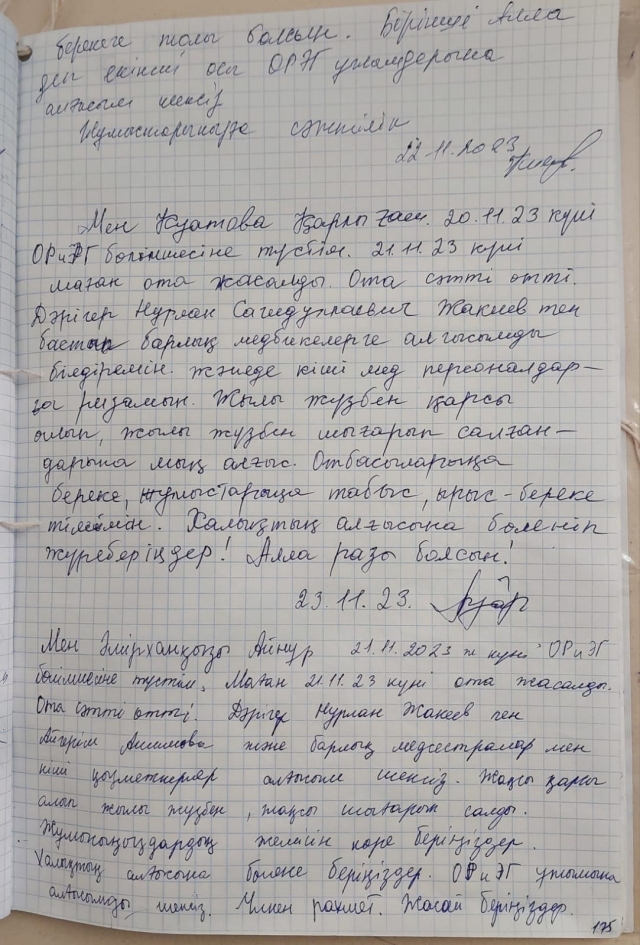 берекеге толы болсын. Бірінші Алла
ден екінші осы ОРЭГ ұжымдарына
алғысым шексіз
Жұмыстарыңызға сәттілік
22.11.2023
Мен Куатова Қарлығаш. 20.11.23 күні
ОРиЭГ бөлімшесіне түстім. 21.11.23 күні
маған ота жасалды. Ота сәтті өтті.
Дәрігер Нурлан Сагидуллаевич Жакиев тен
бастап барлық медбикелерге алғысымды
білдіремін. жәнеде кіші мед персоналдар-
ға ризамын. Жылы жүзбен қарсы
алып, жылы жүзбен шығарып салған-
дарына мың алғыс. Отбасыларыңа
береке, жұмыстарыңа табыс, ырыс-береке
тілеймін. Халықтың алғысына бөленіп
жүреберіңдер! Алла разы болсын!
23.11.23.
Мен Әмірханқызы Айнур 21.11.2023 ж күні ОРиЭГ
бөлімшесіне түстім, Маған 21.11.23 күні ота жасалды.
Ота сәтті өтті. Дәрігер Нурлан Жакиев пен
Айгерім Ашимова және барлық медсестралар мен
кіші қызметкерлер алғысым шексіз. Жақсы қарсы
алып жылы жүзбен, жақсы шығарып салды.
Жұмысыңыздардың жемісін көре беріңіздер.
Халықтың алғысына бөлене беріңіздер. ОРиЭГ ұжымына
алғысымыз шексіз. Үлкен рахмет. Жасай беріңіздер.
175